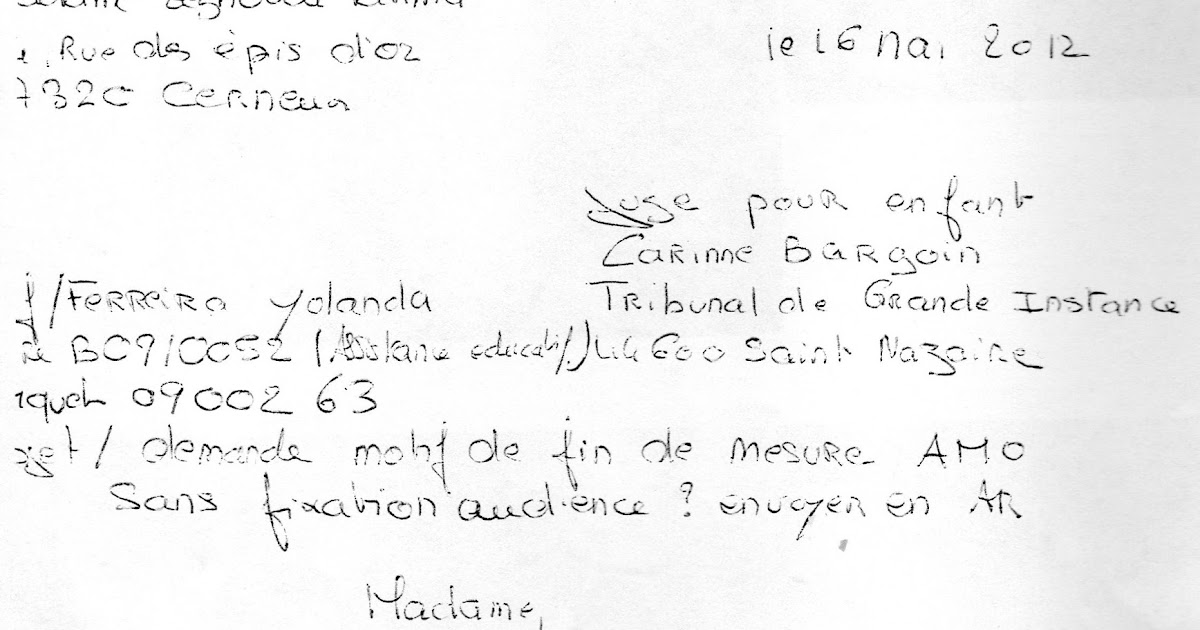 Rue des épis d'oz
le 16 Mai 2012
7320 Cerneux
Juge pour enfant
Carinne Bargoin
f/Ferreira Yolanda
Tribunal de Grande Instance
B09/0052 (Assistance éducatif.) 44600 Saint Nazaire
rquet 0900263
jet/ demande motif de fin de mesure AMO
Sans fixation audience ? envoyer en AR
Madame,